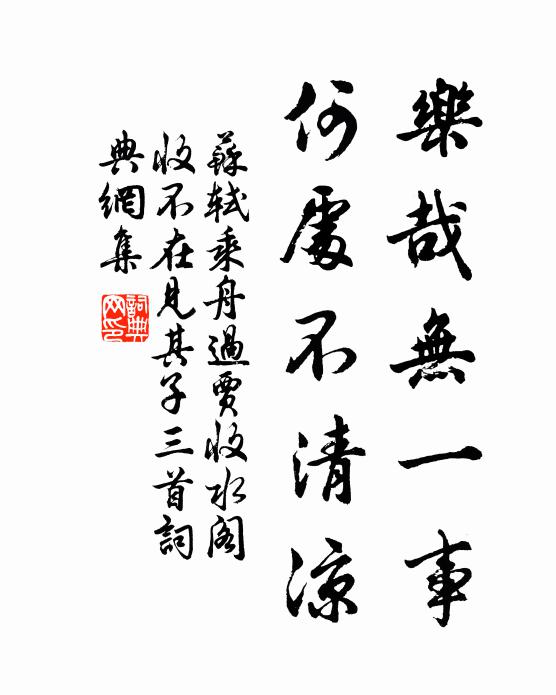 樂哉無一事
何處不清涼
蘇軾乘舟過賈收水阁
收不在見其子三首詞
典網集
詞典网印